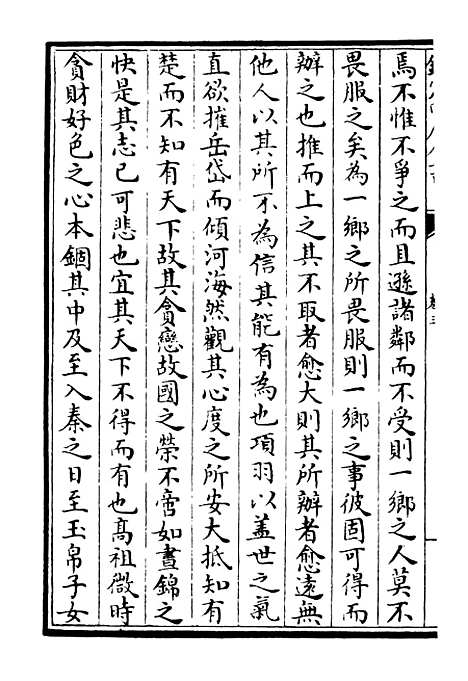 焉不惟不爭之而且遜諸鄰而不受則一鄉之人莫不
畏服之矣為一鄉之所畏服則一鄉之事彼固可得而
辦之也推而上之其不取者愈大則其所辦者愈遠無
他人以其所不為信其能有為也項羽以蓋世之氣
直欲摧岳岱而傾河海然觀其心度之所安大抵知有
楚而不知有天下故其貪戀故國之榮不啻如晝錦之
快是其志已可悲也宜其天下不得而有也髙祖微時
貪財好色之心本錮其中及至入秦之日至玉帛子女